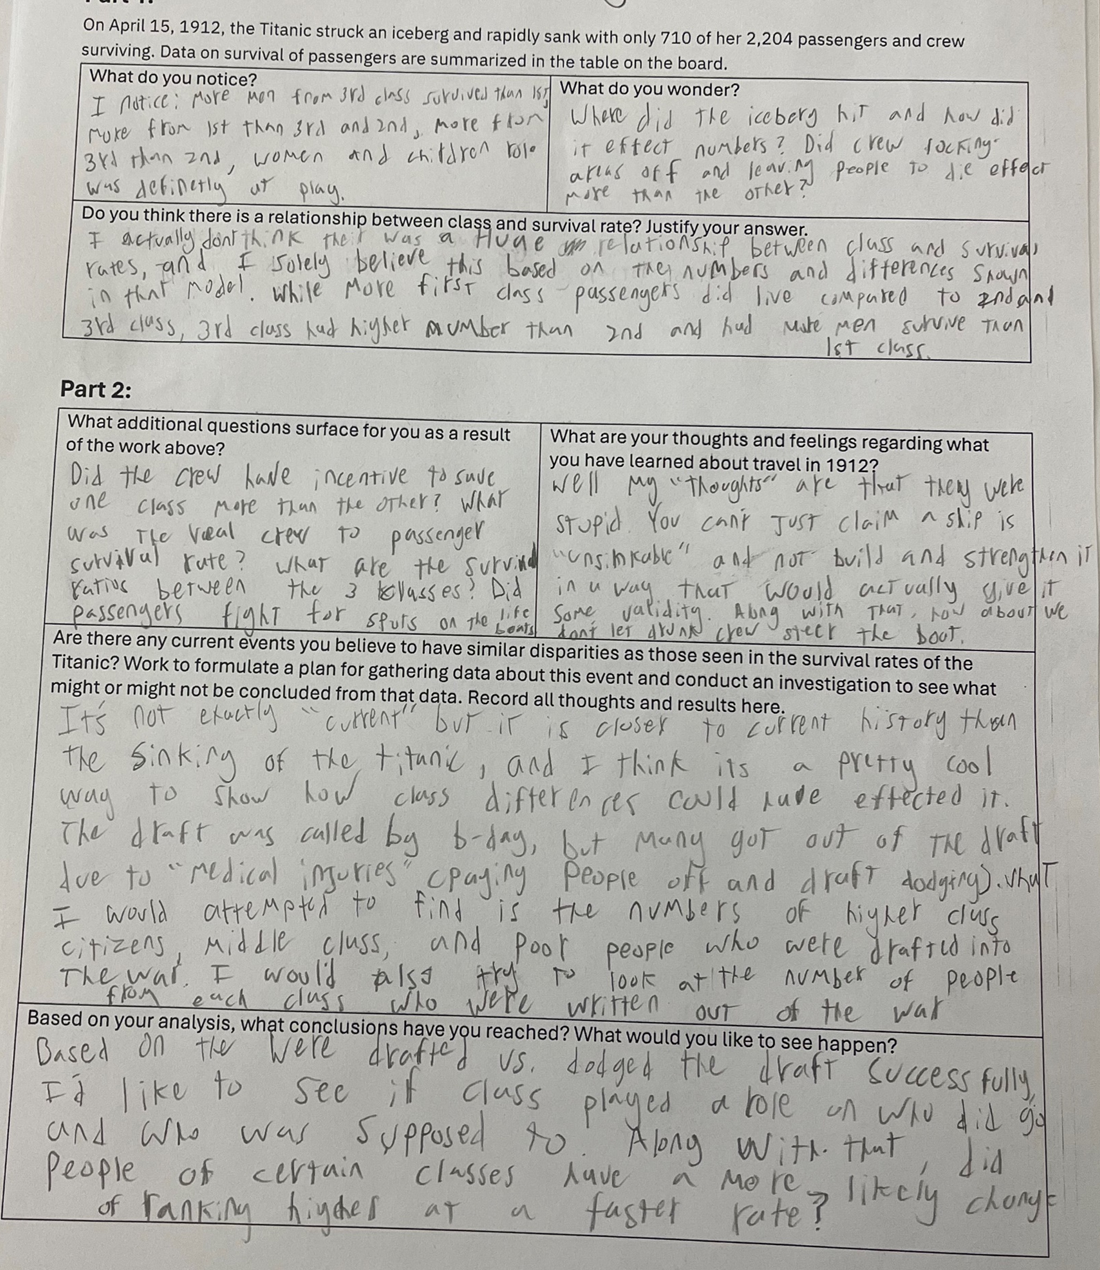 On April 15, 1912, the Titanic struck an iceberg and rapidly sank with only 710 of her 2,204 passengers and crew
surviving. Data on survival of passengers are summarized in the table on the board.
What do you notice?
I notice: more men from 3rd class survived than 1st
more from 1st than 3rd and 2nd, more from
3rd than 2nd, women and children role
was definetly at play.
What do you wonder?
Where did the iceberg hit and how did
it effect numbers? Did crew locking
areas off and leaving people to die effect
more than the other?
Do you think there is a relationship between class and survival rate? Justify your answer.
I actually dont think their was a Huge relationship between class and survival
rates, and I solely believe this based on the numbers and differences shown
in that model. While more first class passengers did live compared to 2nd and
3rd class, 3rd class had higher number than 2nd and had more men survive than
1st class.
Part 2:
What additional questions surface for you as a result
of the work above?
Did the crew have incentive to save
one class more than the other? What
was the real crew to passenger
survival rate? What are the survival
ratios between the 3 classes? Did
passengers fight for spots on the life
boats
What are your thoughts and feelings regarding what
you have learned about travel in 1912?
Well my "thoughts" are that they were
stupid. You can't just claim a ship is
"unsinkable" and not build and strengthen it
in a way that would actually give it
some validity. Along with that, how about we
dont let drunk crew steer the boat.
Are there any current events you believe to have similar disparities as those seen in the survival rates of the
Titanic? Work to formulate a plan for gathering data about this event and conduct an investigation to see what
might or might not be concluded from that data. Record all thoughts and results here.
It's not exactly "current" but it is closer to current history than
the sinking of the titanic, and I think its a pretty cool
way to show how class differences could have effected it.
The draft was called by b-day, but many got out of the draft
due to "medical injuries" (paying people off and draft dodging). What
I would attempted to find is the numbers of higher class
citizens, middle class, and poor people who were drafted into
the war. I would also try to look at the number of people
from each class who were written out of the war
Based on your analysis, what conclusions have you reached? What would you like to see happen?
Based on the were drafted vs. dodged the draft successfully,
I'd like to see if class played a role on who did go
and who was supposed to. Along with that, did
people of certain classes have a more likely change
of ranking higher at a faster rate?